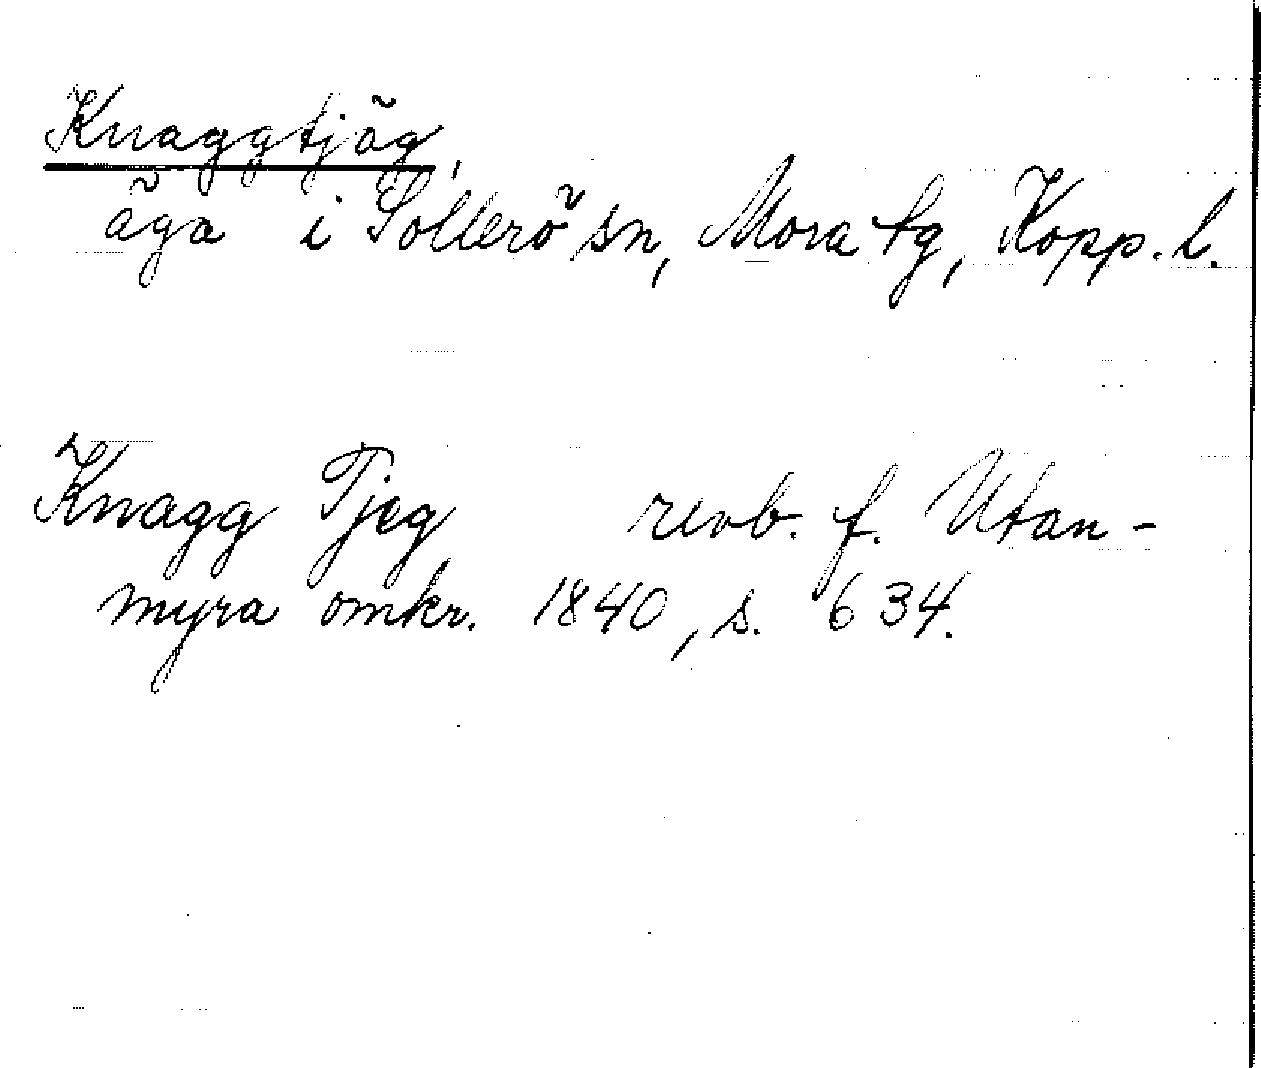 Knaggtjäg,
äga i Sollerö sn, Mora tg, Kopp. l.
Knagg Tjeg revb. f. Utan-
myra omkr. 1840, s. 634.